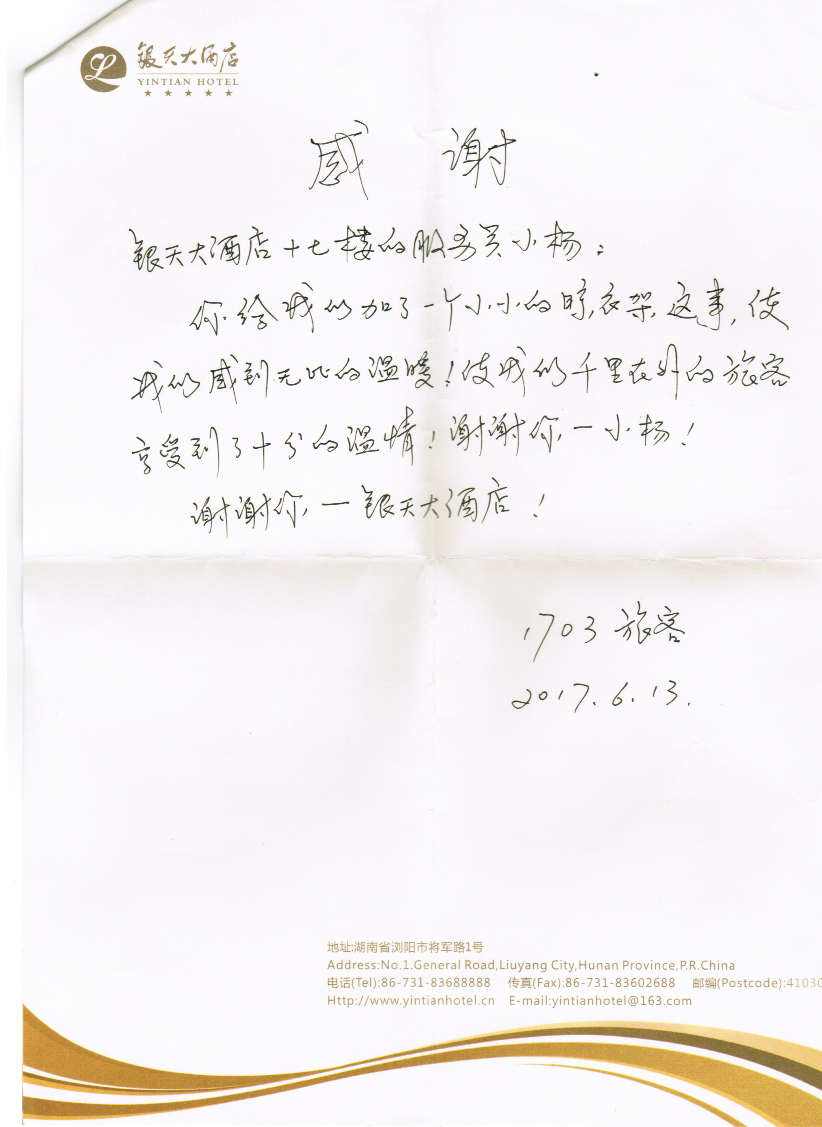 银天大酒店
YINTIAN HOTEL
感 谢
银天大酒店十七楼的服务员小杨:
你给我们加了一个小小的晾衣架,这事,使
我们感到无比的温暖!使我们千里在外的旅客
享受到了十分的温情!谢谢你,—小杨!
谢谢你,—银天大酒店!
1703 旅客
2017.6.13.
地址:湖南省浏阳市将军路1号
Address:No.1.General Road,Liuyang City,Hunan Province,P.R.China
电话(Tel):86-731-83688888 传真(Fax):86-731-83602688 邮编(Postcode):41030
Http://www.yintianhotel.cn E-mail:yintianhotel@163.com